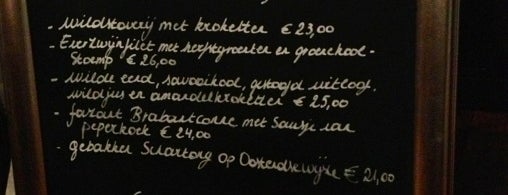 - Wildstoverij met kroketten € 23,00
- Everzwijnfilet met herfstgroenten en groenekool-
Stoemp € 26,00
- Wilde eend, savooikool, gekookt witloof,
wildjus en amandelkroketten € 25,00
- fazant Brabantconne met Sausje van
peperkoek € 24,00
- gebakken op € 21,00